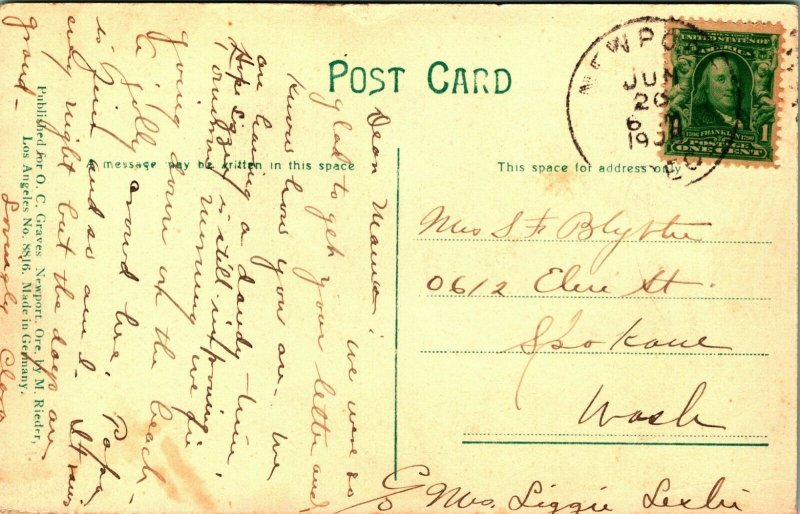 POST CARD
A message may be written in this space
This space for address only
Published for O. C. Graves, Newport, Ore. by M. Rieder,
Los Angeles No. 8816. Made in Germany.
NEWPORT
JUN
26
UNITED STATES OF
AMERICA
FRANKLIN
POSTAGE
ONE CENT
1
Dear Mama:
we were so
glad to get your letter and
know how you are. We
are having a dandy time,
is still improving
going down on the beach
a jolly around here. Papa
is fine and so am I. It rains
every night but the days are
grand.
Lovingly Clara
Mrs S F Blythe
0612 Elm St
Spokane
Wash
c/o Mrs. Lizzie Leslie